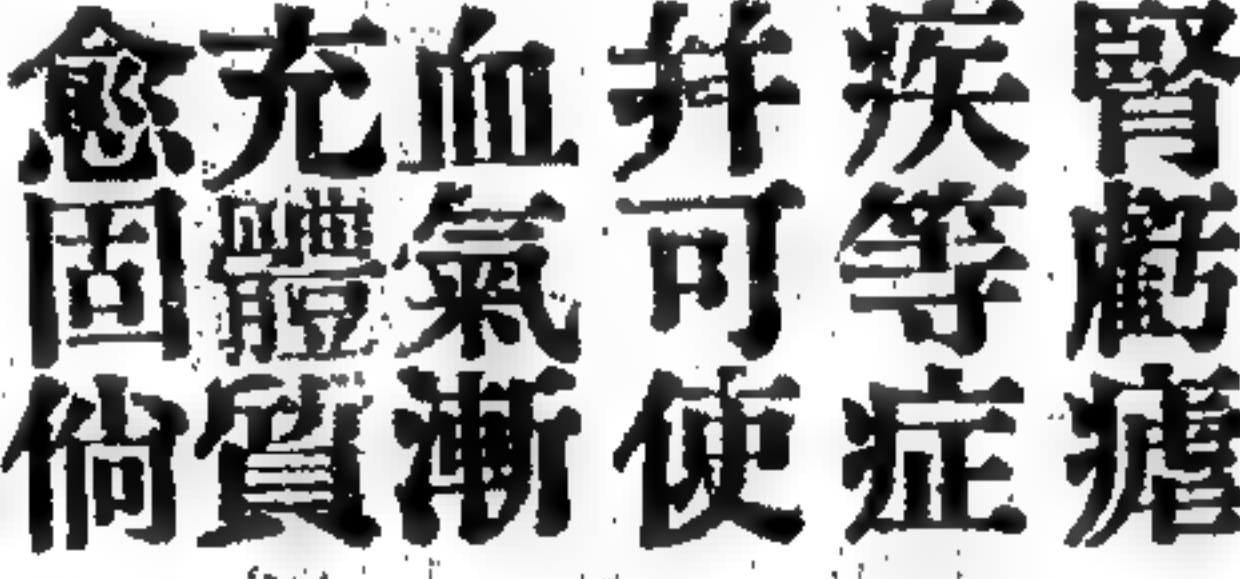 腎虧瘧
疾等症
幷可使
血氣漸
充體質
愈固倘